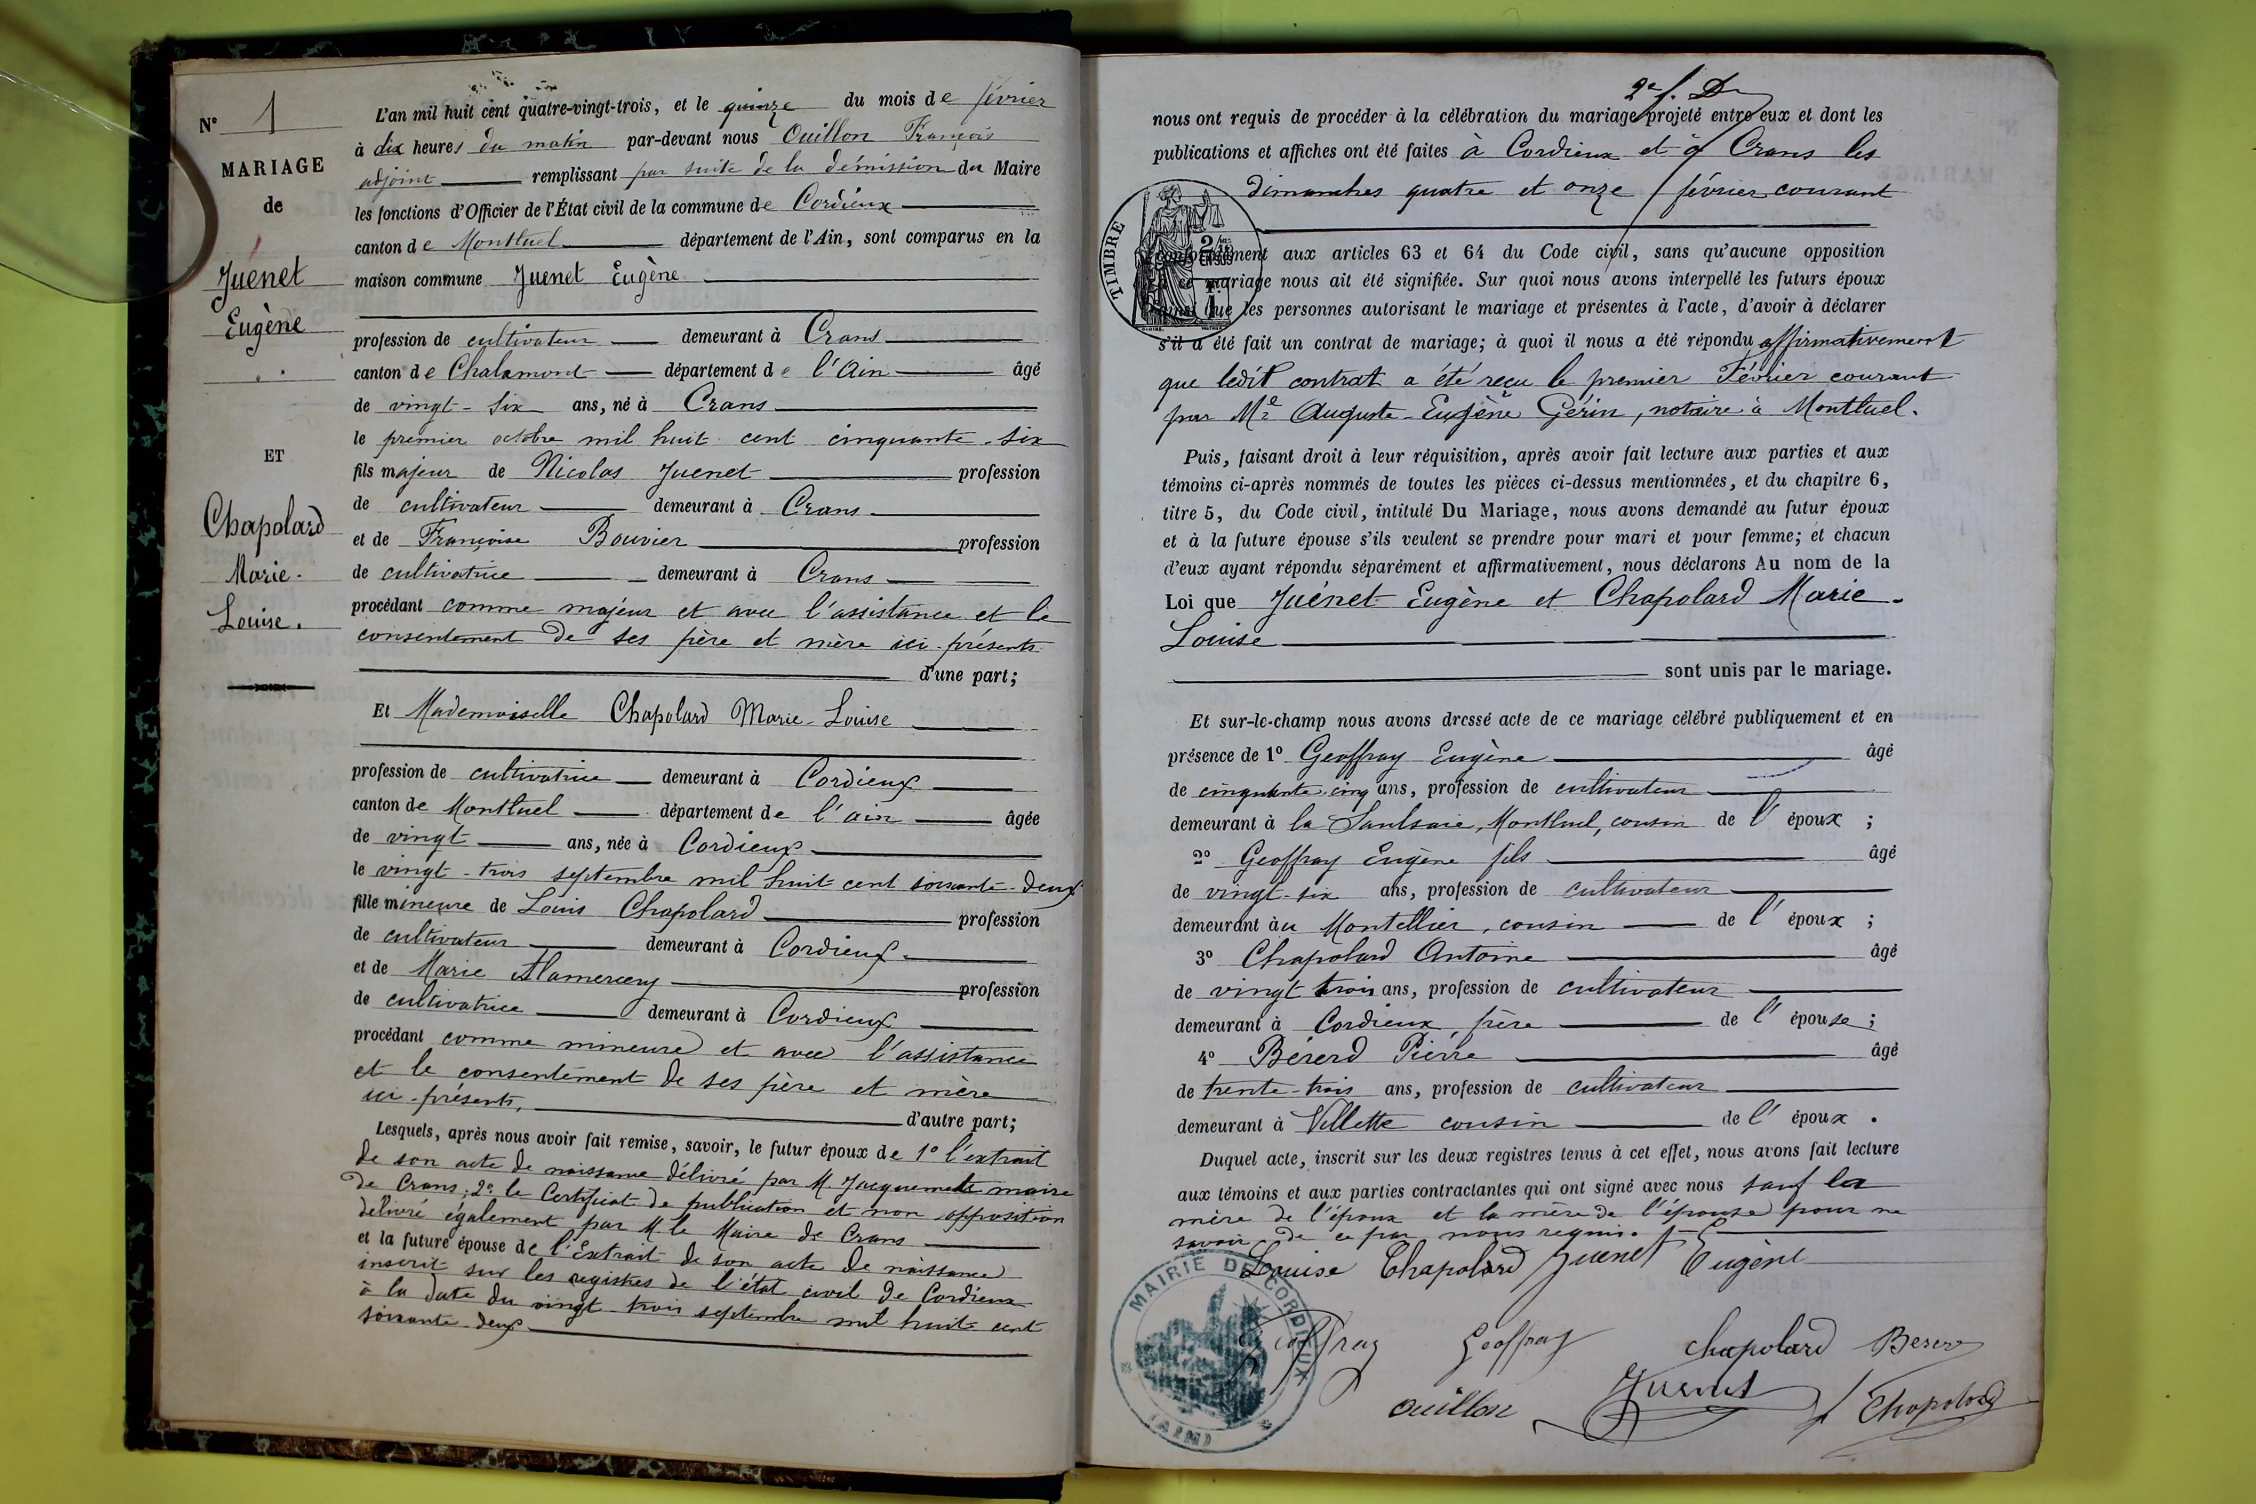 N° 1
MARIAGE
de
Juenet
Eugène
ET
Chapolard
Marie-
Louise.
L'an mil huit cent quatre-vingt-trois, et le quinze du mois de février
à dix heures du matin par-devant nous Ouillon François
adjoint remplissant par suite de la démission du Maire
les fonctions d'Officier de l'État civil de la commune de Cordieux
canton de Montluel département de l'Ain, sont comparus en la
maison commune Juenet Eugène
profession de cultivateur demeurant à Crans
canton de Chalamont département de l'Ain âgé
de vingt-six ans, né à Crans
le premier octobre mil huit cent cinquante-six
fils majeur de Nicolas Juenet profession
de cultivateur demeurant à Crans
et de Françoise Bouvier profession
de cultivatrice demeurant à Crans
procédant comme majeur et avec l'assistance et le
consentement de ses père et mère ici-présents
d'une part;
Et Mademoiselle Chapolard Marie-Louise
profession de cultivatrice demeurant à Cordieux
canton de Montluel département de l'ain âgée
de vingt ans, née à Cordieux
le vingt-trois septembre mil huit cent soixante-deux
fille mineure de Louis Chapolard profession
de cultivateur demeurant à Cordieux
et de Marie Alamercery profession
de cultivatrice demeurant à Cordieux
procédant comme mineure et avec l'assistance
et le consentement de ses père et mère
ici-présents, d'autre part;
Lesquels, après nous avoir fait remise, savoir, le futur époux de 1° l'extrait
de son acte de naissance délivré par M. Jacquemet maire
de Crans; 2° le Certificat de publication et non opposition
délivré également par M le Maire de Crans
et la future épouse de l'Extrait de son acte de naissance
inscrit sur les registres de l'état civil de Cordieux
à la date du vingt-trois septembre mil huit cent
soixante-deux
2e f. D
nous ont requis de procéder à la célébration du mariage projeté entre eux et dont les
publications et affiches ont été faites à Cordieux et à Crans les
dimanches quatre et onze février courant
TIMBRE
conformément aux articles 63 et 64 du Code civil, sans qu'aucune opposition
à ce mariage nous ait été signifiée. Sur quoi nous avons interpellé les futurs époux
ainsi que les personnes autorisant le mariage et présentes à l'acte, d'avoir à déclarer
s'il a été fait un contrat de mariage; à quoi il nous a été répondu affirmativement
que ledit contrat a été reçu le premier Février courant
par Me Auguste-Eugène Gérin, notaire à Montluel.
Puis, faisant droit à leur réquisition, après avoir fait lecture aux parties et aux
témoins ci-après nommés de toutes les pièces ci-dessus mentionnées, et du chapitre 6,
titre 5, du Code civil, intitulé Du Mariage, nous avons demandé au futur époux
et à la future épouse s'ils veulent se prendre pour mari et pour femme; et chacun
d'eux ayant répondu séparément et affirmativement, nous déclarons Au nom de la
Loi que Juénet Eugène et Chapolard Marie-
Louise
sont unis par le mariage.
Et sur-le-champ nous avons dressé acte de ce mariage célébré publiquement et en
présence de 1° Geoffray Eugène âgé
de cinquante-cinq ans, profession de cultivateur
demeurant à la Saulsaie, Montluel, cousin de l'époux ;
2° Geoffray Eugène fils âgé
de vingt-six ans, profession de cultivateur
demeurant au Montellier, cousin de l'époux ;
3° Chapolard Antoine âgé
de vingt trois ans, profession de cultivateur
demeurant à Cordieux, frère de l'épouse ;
4° Bérerd Pierre âgé
de trente-trois ans, profession de cultivateur
demeurant à Villette cousin de l'époux .
Duquel acte, inscrit sur les deux registres tenus à cet effet, nous avons fait lecture
aux témoins et aux parties contractantes qui ont signé avec nous sauf la
mère de l'époux et la mère de l'épouse pour ne
savoir de ce par nous requis.
Louise Chapolard Juenet Eugène
MAIRIE DE CORDIEUX
(AIN)
Geoffray Geoffray Chapolard Bererd
Ouillon Juenet Chapolard